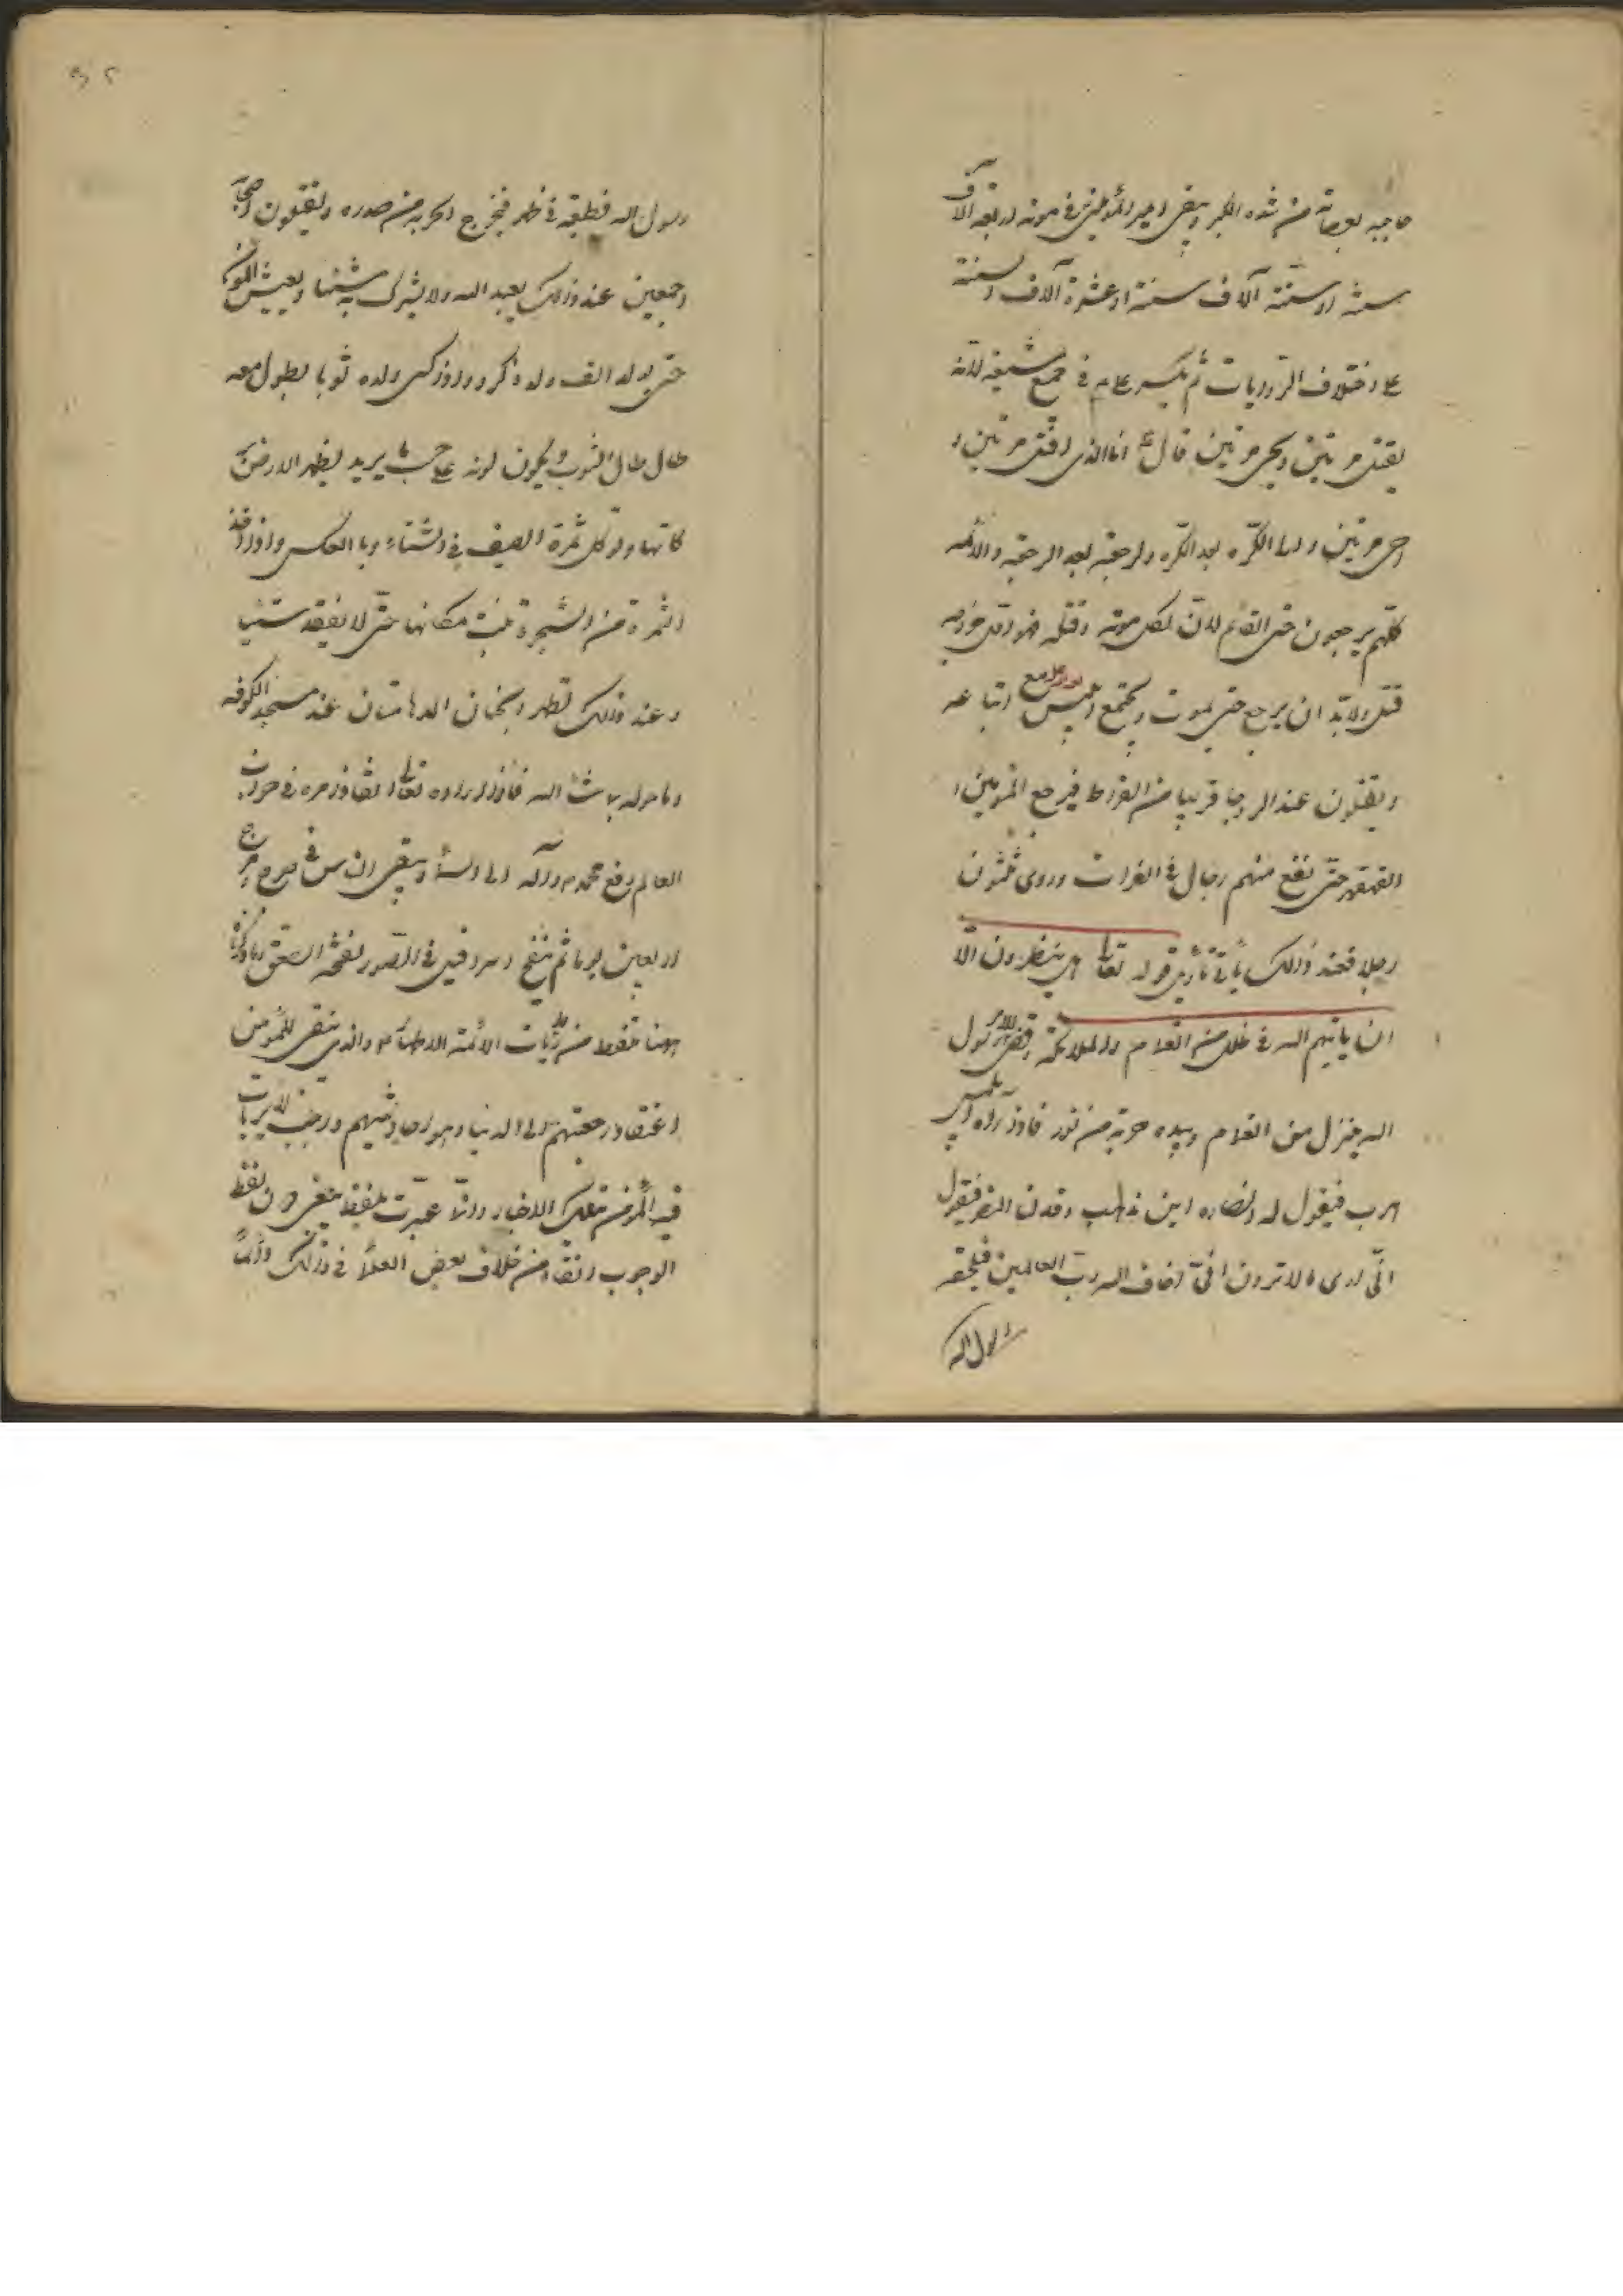 حاجبيه بعصابة من شدة الكبر ويبقى امير المؤمنين في موته اربعة آلاف
سنة او ستة آلاف سنة او عشرة آلاف سنة
على اختلاف الروايات ثم يكر علي ع في جميع شيعته لانه
يقتل مرتين ويحيى مرتين قال ع انا الذي اقتل مرتين و
احيى مرتين ولي الكرة بعد الكرة والرجعة بعد الرجعة والائمة
كلهم يرجعون حتى القائم لان لكل مؤمن موتة وقتلة فهو اول خروجه
قتل ولابد ان يرجع حتى يموت ويجتمع ابليس مع اتباعه
ويقتتلون عند الروحا قريبا من الفرات فيرجع المؤمنين
القهقرى حتى تقع منهم رجال في الفرات وروى ثلثون
رجلا فعند ذلك يأتي تأويل قوله تعالى هل ينظرون الا
ان ياتيهم الله في ظلل من الغمام والملائكة وقضي الامر رسول
الله ينزل من الغمام وبيده حربة من نور فاذا راه ابليس
هرب فيقول له انصاره اين تذهب وقد ان النصر فيقول
اني ارى ما لا ترون اني اخاف الله رب العالمين فيلحقه
رسول الله
رسول الله فيطعنه في ظهره فيخرج الحربة من صدره ويقتلون اصحابه
اجمعين عند ذلك يعبد الله ولا يشرك به شيئا ويعيش المؤمن
حتى يولد له الف ولد ذكر واذا كسى ولده ثوبا يطول معه
طال طال الثوب ويكون لونه على حسب ما يريد ويظهر الارض بر
كاتها وتؤكل ثمرة الصيف في الشتاء وبالعكس واذا اخذ
الثمرة من الشجرة تنبت مكانها حتى لا يفقد شيئا
وعند ذلك تظهر الجنتان المدهامتان عند مسجد الكوفة
وما حوله بما شاء الله فاذا اراد الله تعالى انفاذ امره في خراب
العالم رفع محمد وآله الى السماء ويبقى الناس في هرج ومرج
اربعين يوما ثم ينفخ اسرافيل في الصور نفخة الصعق
ههنا ملتقط من روايات الائمة الاطهار ع والذي ينبغي للمؤمن
اعتقاد رجعتهم الى الدنيا
فيه المؤمن بتلك الاخبار وانما عبرت بلفظ ينبغي دون لفظ
الوجوب اتقاء من خلاف بعض العلماء في ذلك